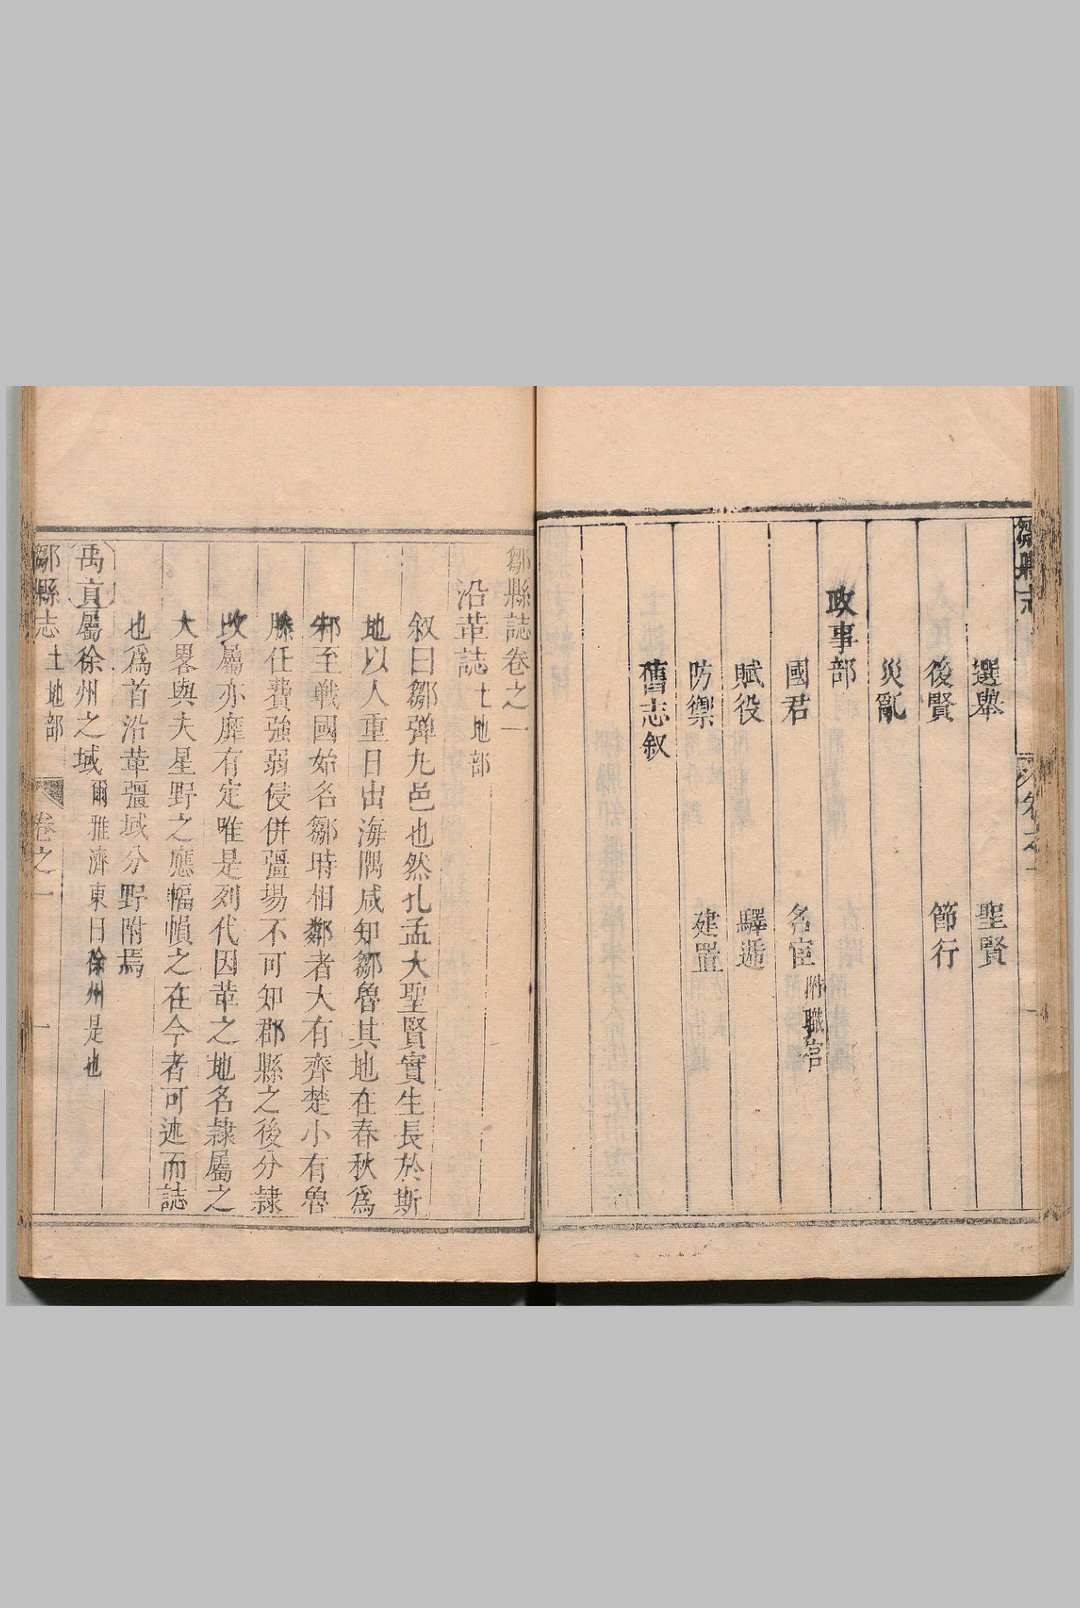 選舉 聖賢
後賢 節行
災亂
政事部
國君 名宦 附職官
賦役 驛遞
防禦 建置
舊志叙
鄒縣誌卷之一
沿革誌 土地部
叙曰鄒弹九邑也然孔孟大聖賢實生長於斯
地以人重日出海隅咸知鄒魯其地在春秋爲
邾至戰國始名鄒時相鄰者大有齊楚小有魯
滕任費強弱侵併彊場不可知郡縣之後分隷
收屬亦靡有定唯是列代因革之地名隷屬之
大畧與夫星野之應幅幀之在今者可述而誌
也爲首沿革彊域分野附焉
禹貢屬徐州之域 爾雅濟東曰徐州是也
鄒縣志 土地部 卷之一 一